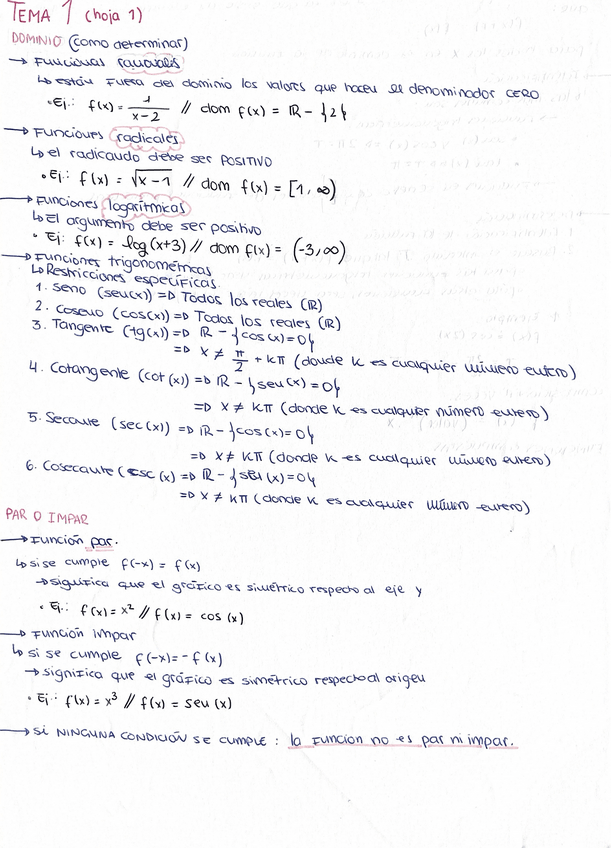 TEMA 1 (hoja 1)
DOMINIO (como determinar)
→ Funciones racionales
↳ están fuera del dominio los valores que hacen el denominador CERO
• Ej.: f(x) = 1/(x-2) // dom f(x) = ℝ - {2}
→ Funciones radicales
↳ el radicando debe ser POSITIVO
• Ej.: f(x) = √(x-1) // dom f(x) = [1, ∞)
→ Funciones logarítmicas
↳ El argumento debe ser positivo
• Ej: f(x) = log(x+3) // dom f(x) = (-3, ∞)
→ Funciones trigonométricas
↳ Restricciones específicas.
1. seno (sen(x)) => Todos los reales (ℝ)
2. Coseno (cos(x)) => Todos los reales (ℝ)
3. Tangente (tg(x)) => ℝ - {cos(x)=0}
=> x ≠ π/2 + kπ (donde k es cualquier número entero)
4. Cotangente (cot(x)) => ℝ - {sen(x)=0}
=> x ≠ kπ (donde k es cualquier número entero)
5. Secante (sec(x)) => ℝ - {cos(x)=0}
=> x ≠ kπ (donde k es cualquier número entero)
6. Cosecante (csc(x) => ℝ - {sen(x)=0}
=> x ≠ kπ (donde k es cualquier número entero)
PAR O IMPAR
→ Función par.
↳ si se cumple f(-x) = f(x)
→ significa que el gráfico es simétrico respecto al eje y
• Ej.: f(x) = x² // f(x) = cos(x)
→ Función impar
↳ si se cumple f(-x) = -f(x)
→ significa que el gráfico es simétrico respecto al origen
• Ej.: f(x) = x³ // f(x) = sen(x)
→ SI NINGUNA CONDICIÓN SE CUMPLE: la Funcion no es par ni impar.